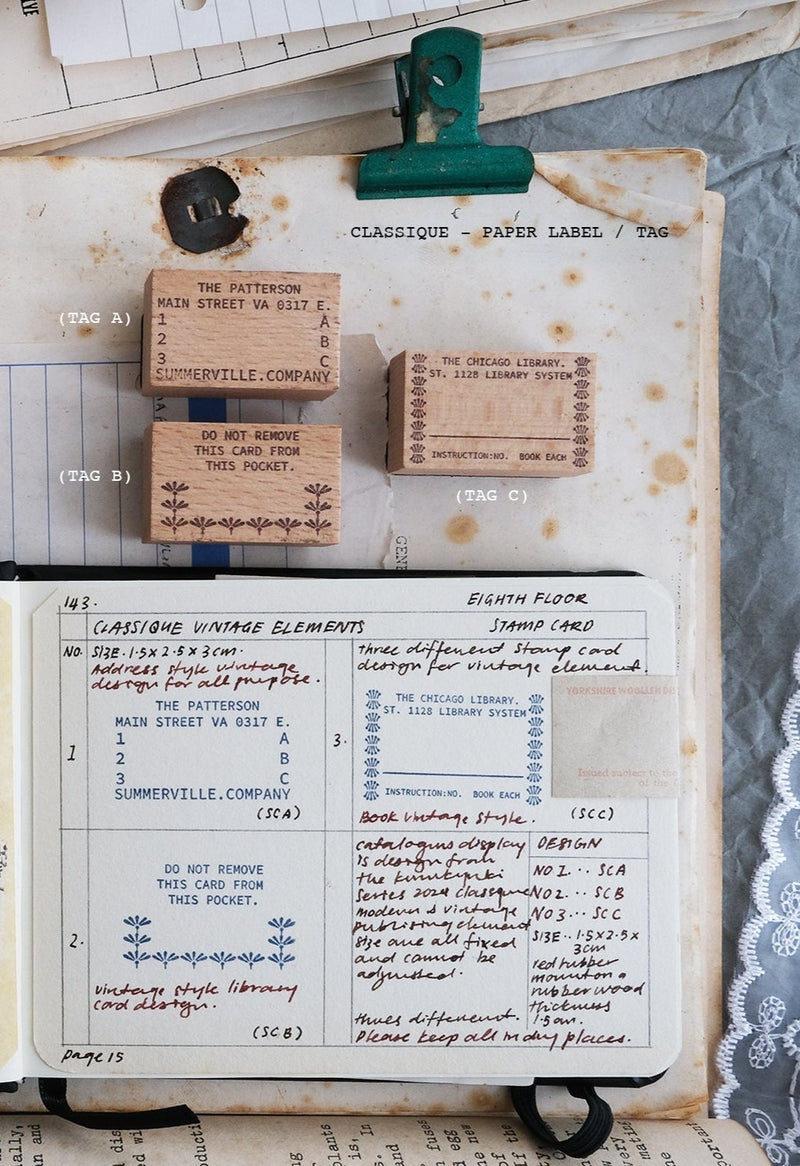 CLASSIQUE - PAPER LABEL / TAG
(TAG A)
THE PATTERSON
MAIN STREET VA 0317 E.
1 A
2 B
3 C
SUMMERVILLE.COMPANY
(TAG B)
DO NOT REMOVE
THIS CARD FROM
THIS POCKET.
THE CHICAGO LIBRARY.
ST. 1128 LIBRARY SYSTEM
INSTRUCTION:NO. BOOK EACH
(TAG C)
143. EIGHTH FLOOR
CLASSIQUE VINTAGE ELEMENTS STAMP CARD
NO. SIZE. 1.5 x 2.5 x 3 cm.
Address style vintage
design for all purpose.
1
THE PATTERSON
MAIN STREET VA 0317 E.
1 A
2 B
3 C
SUMMERVILLE.COMPANY
(SCA)
2.
DO NOT REMOVE
THIS CARD FROM
THIS POCKET.
vintage style library
card design.
(SCB)
Page 15
three different stamp card
design for vintage element.
3.
THE CHICAGO LIBRARY.
ST. 1128 LIBRARY SYSTEM
INSTRUCTION:NO. BOOK EACH
YORKSHIRE WOOLLEN
Issued subject to the
of the
Book vintage style. (SCC)
catalogue display
is design from
the
series 2024 classique
modern & vintage
publising element
size are all fixed
and cannot be
adjusted.
DESIGN
NO 1... SCA
NO 2... SCB
NO 3... SCC
SIZE.. 1.5 x 2.5 x
3cm
red rubber
mount on a
rubber wood
thickness
1.5 cm.
different.
Please keep all in dry places.